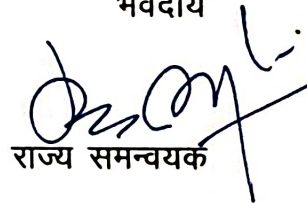 भवदीय
राज्य समन्वयक